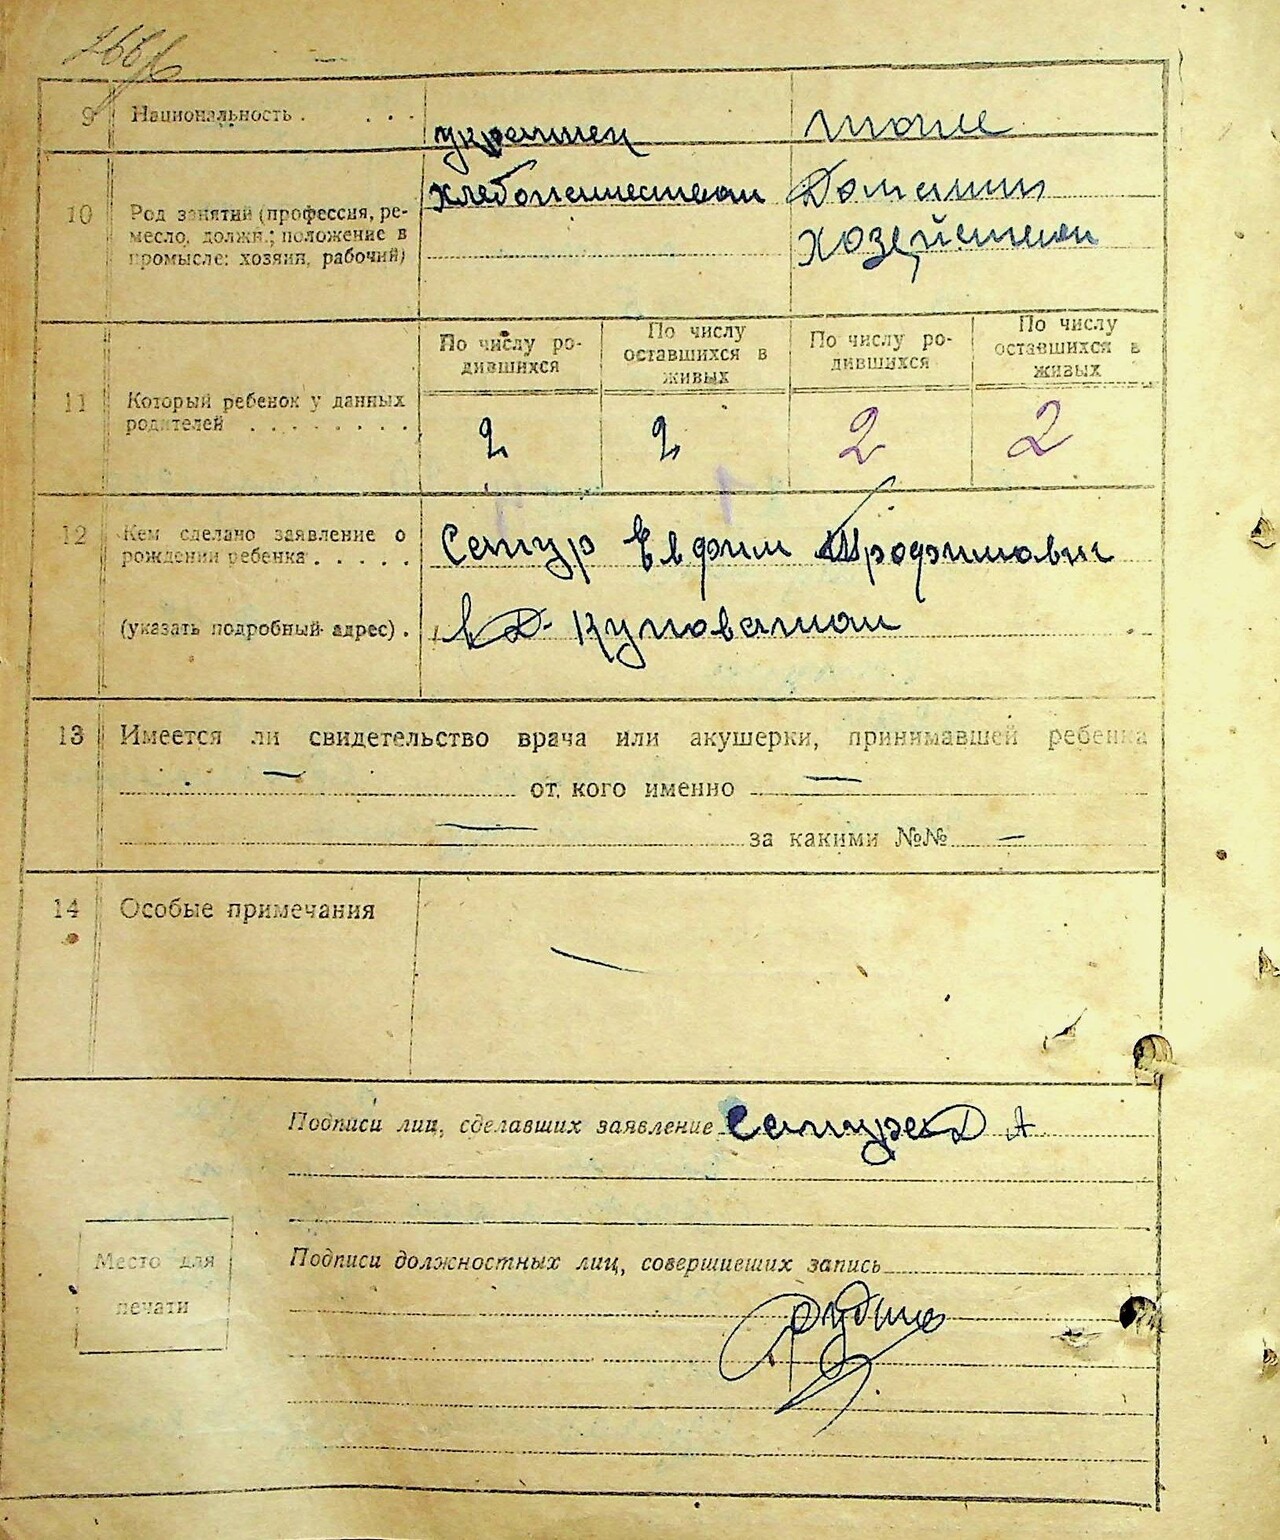 9 Национальность . . . . украинец тоже
хлебопашеством Домашним
хозейством
10 Род занятий (профессия, ре-
месло, должн.; положение в
промысле: хозяин, рабочий)
По числу ро-
дившихся
По числу
оставшихся в
живых
По числу ро-
дившихся
По числу
оставшихся в
живых
11 Который ребенок у данных
родителей . . . . . . . . 2 2 2 2
12 Кем сделано заявление о
рождении ребенка . . . . . Евфим Трофимович
(указать подробный адрес) .
13 Имеется ли свидетельство врача или акушерки, принимавшей ребенка
— от кого именно —
— за какими №№ —
14 Особые примечания
—
Подписи лиц, сделавших заявление
Подписи должностных лиц, совершивших запись
Место для
печати